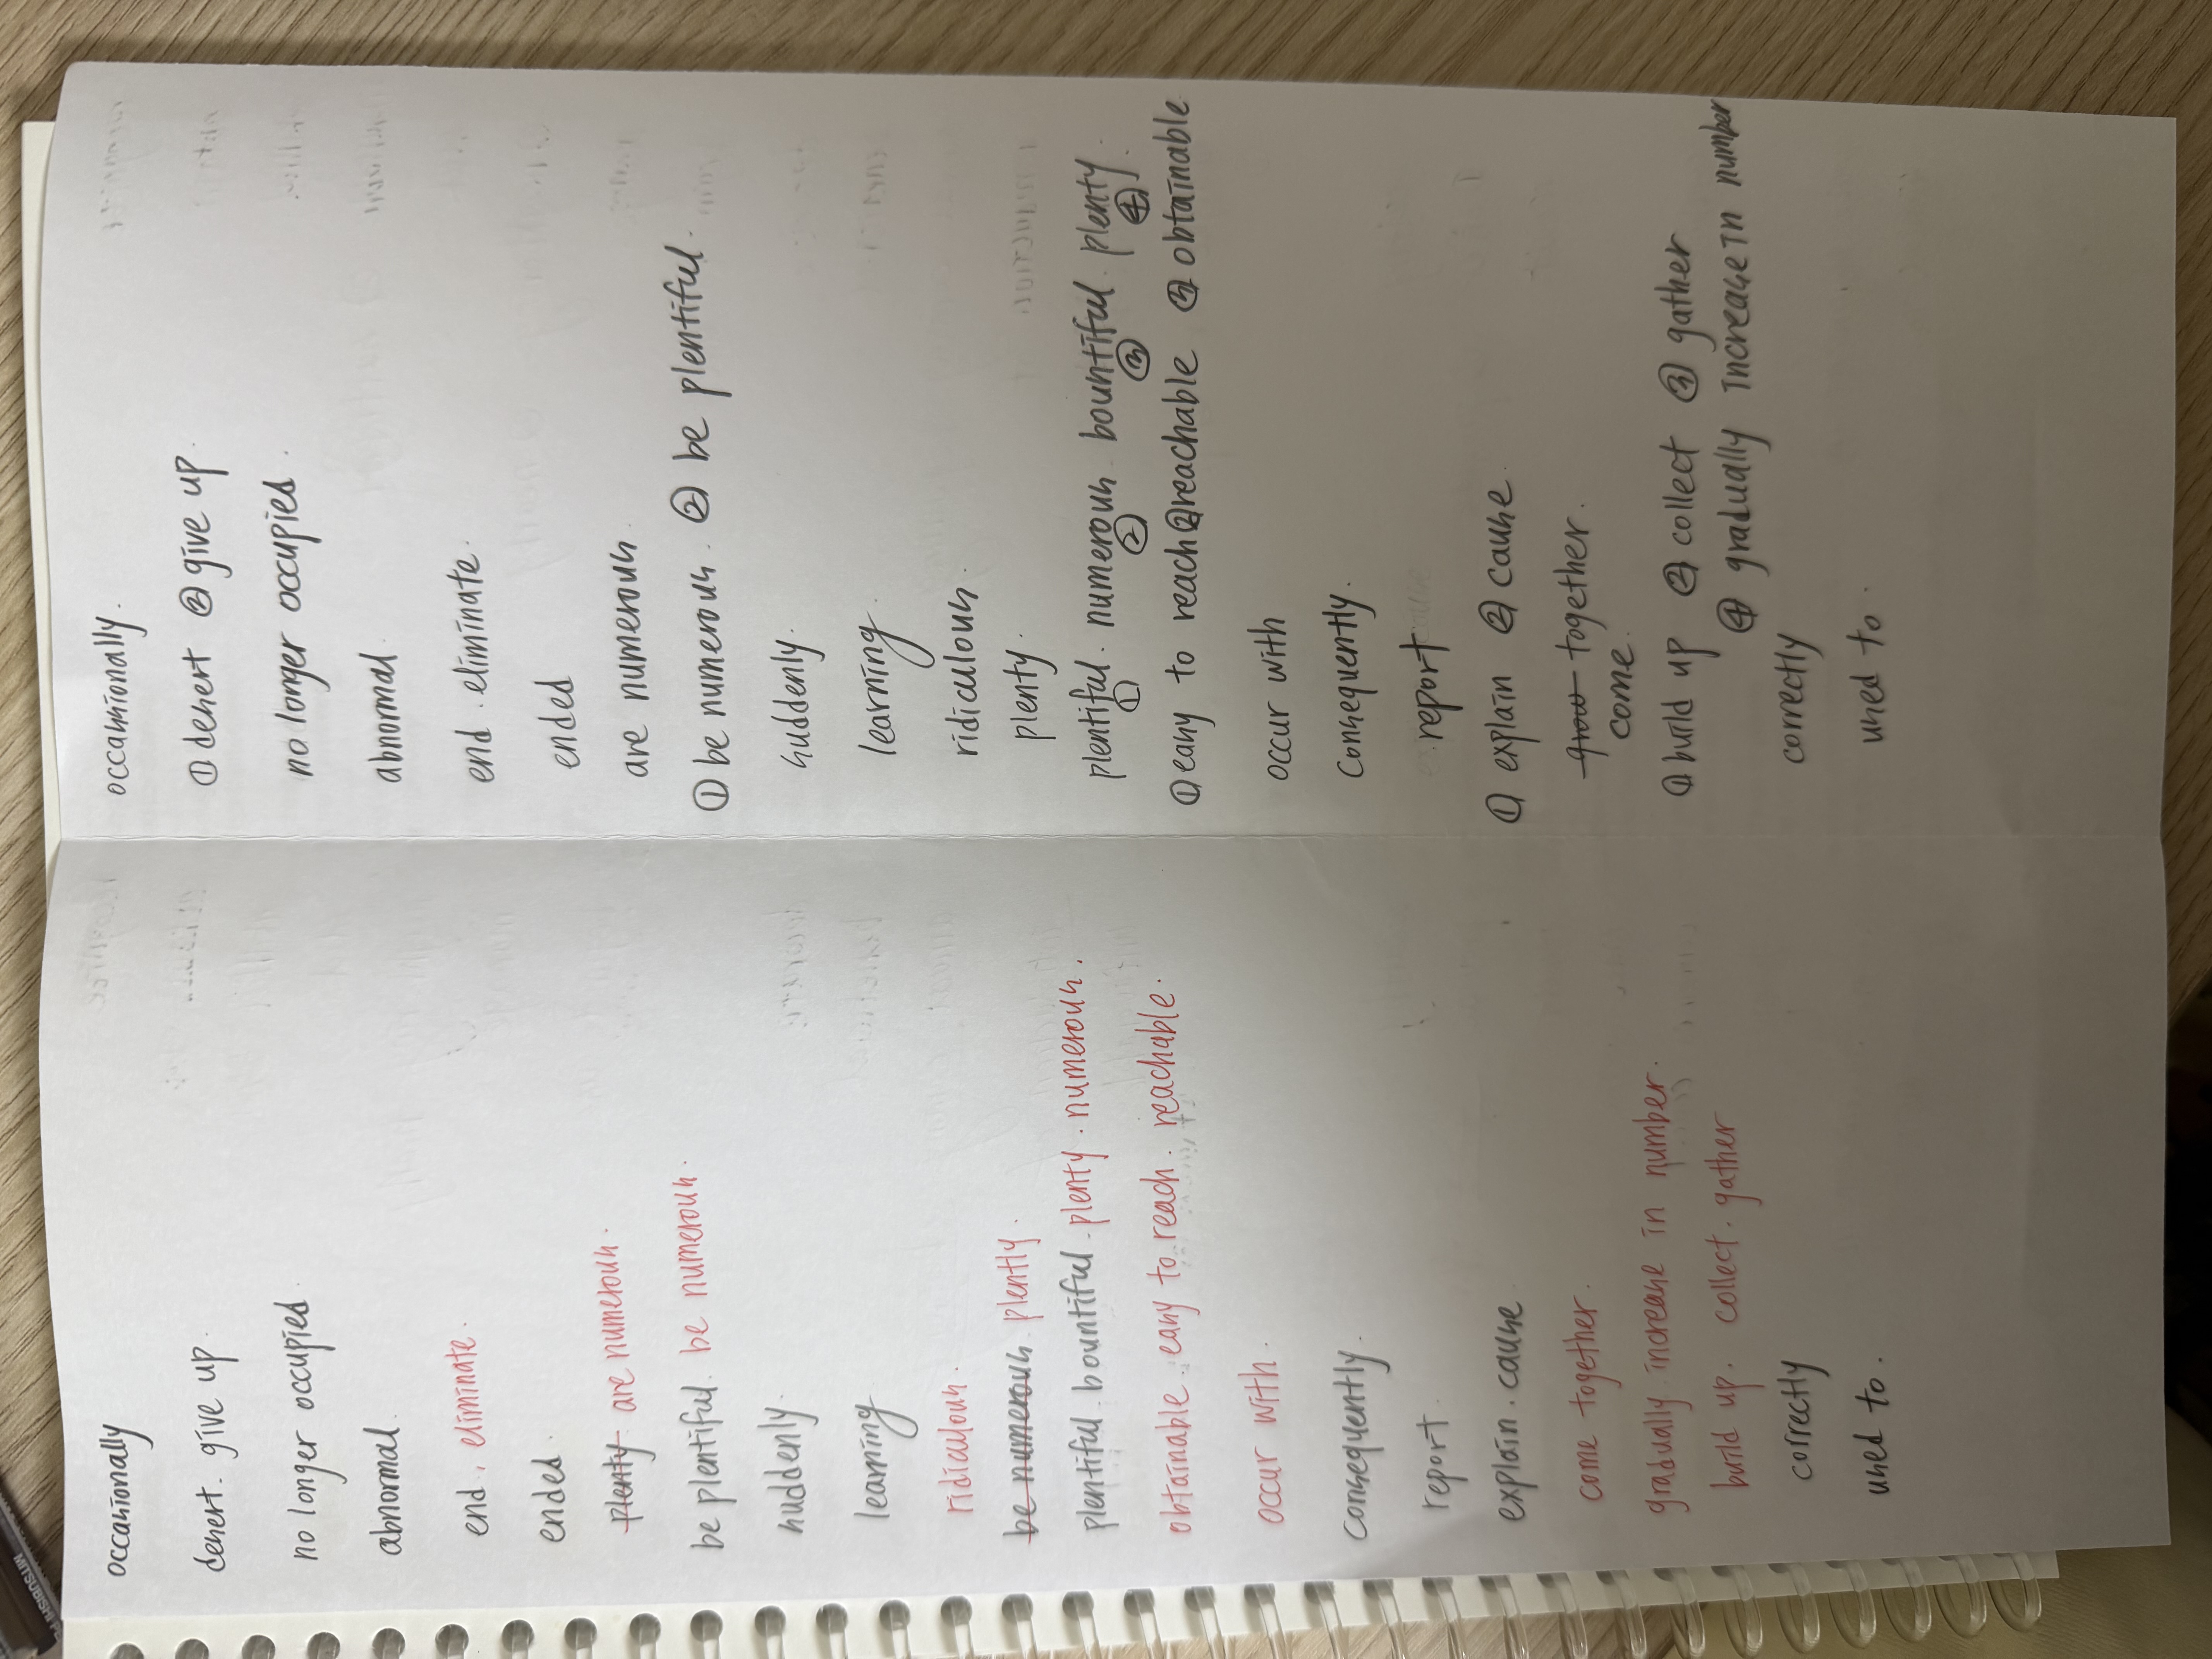 occasionally
desert. give up.
no longer occupied.
abnormal.
end. eliminate.
ended.
plenty are numerous.
be plentiful. be numerous.
suddenly.
learning
ridiculous.
be numerous. plently.
plentiful. bountiful. plenty. numerous.
obtainable. easy to reach. reachable.
occur with.
consequently.
report.
explain. cause.
come together.
gradually increase in number.
build up. collect. gather
correctly
used to.
occasionally.
① desert ② give up.
no longer occupied.
abnormal.
end. eliminate.
ended
are numerous.
① be numerous. ② be plentiful.
suddenly.
learning.
ridiculous.
plenty.
plentiful. numerous. bountiful. plenty.
① ② ③ ④
① easy to reach ② reachable ③ obtainable
occur with
consequently.
report
① explain ② cause
grow together.
come.
① build up ② collect ③ gather
④ gradually increase in number
correctly
used to.
MITSUBISHI